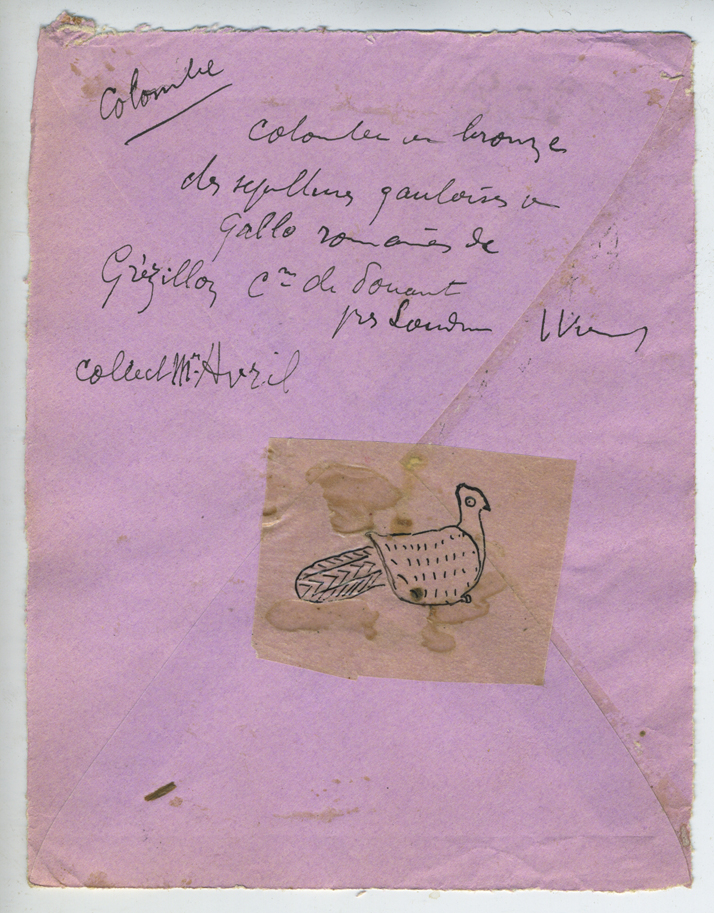 Colombe
Colombe en bronze
des sepultures gauloises ou
Gallo romaines de
Grézillon Cne de
près Loudun Vienne
collect Mr Avril